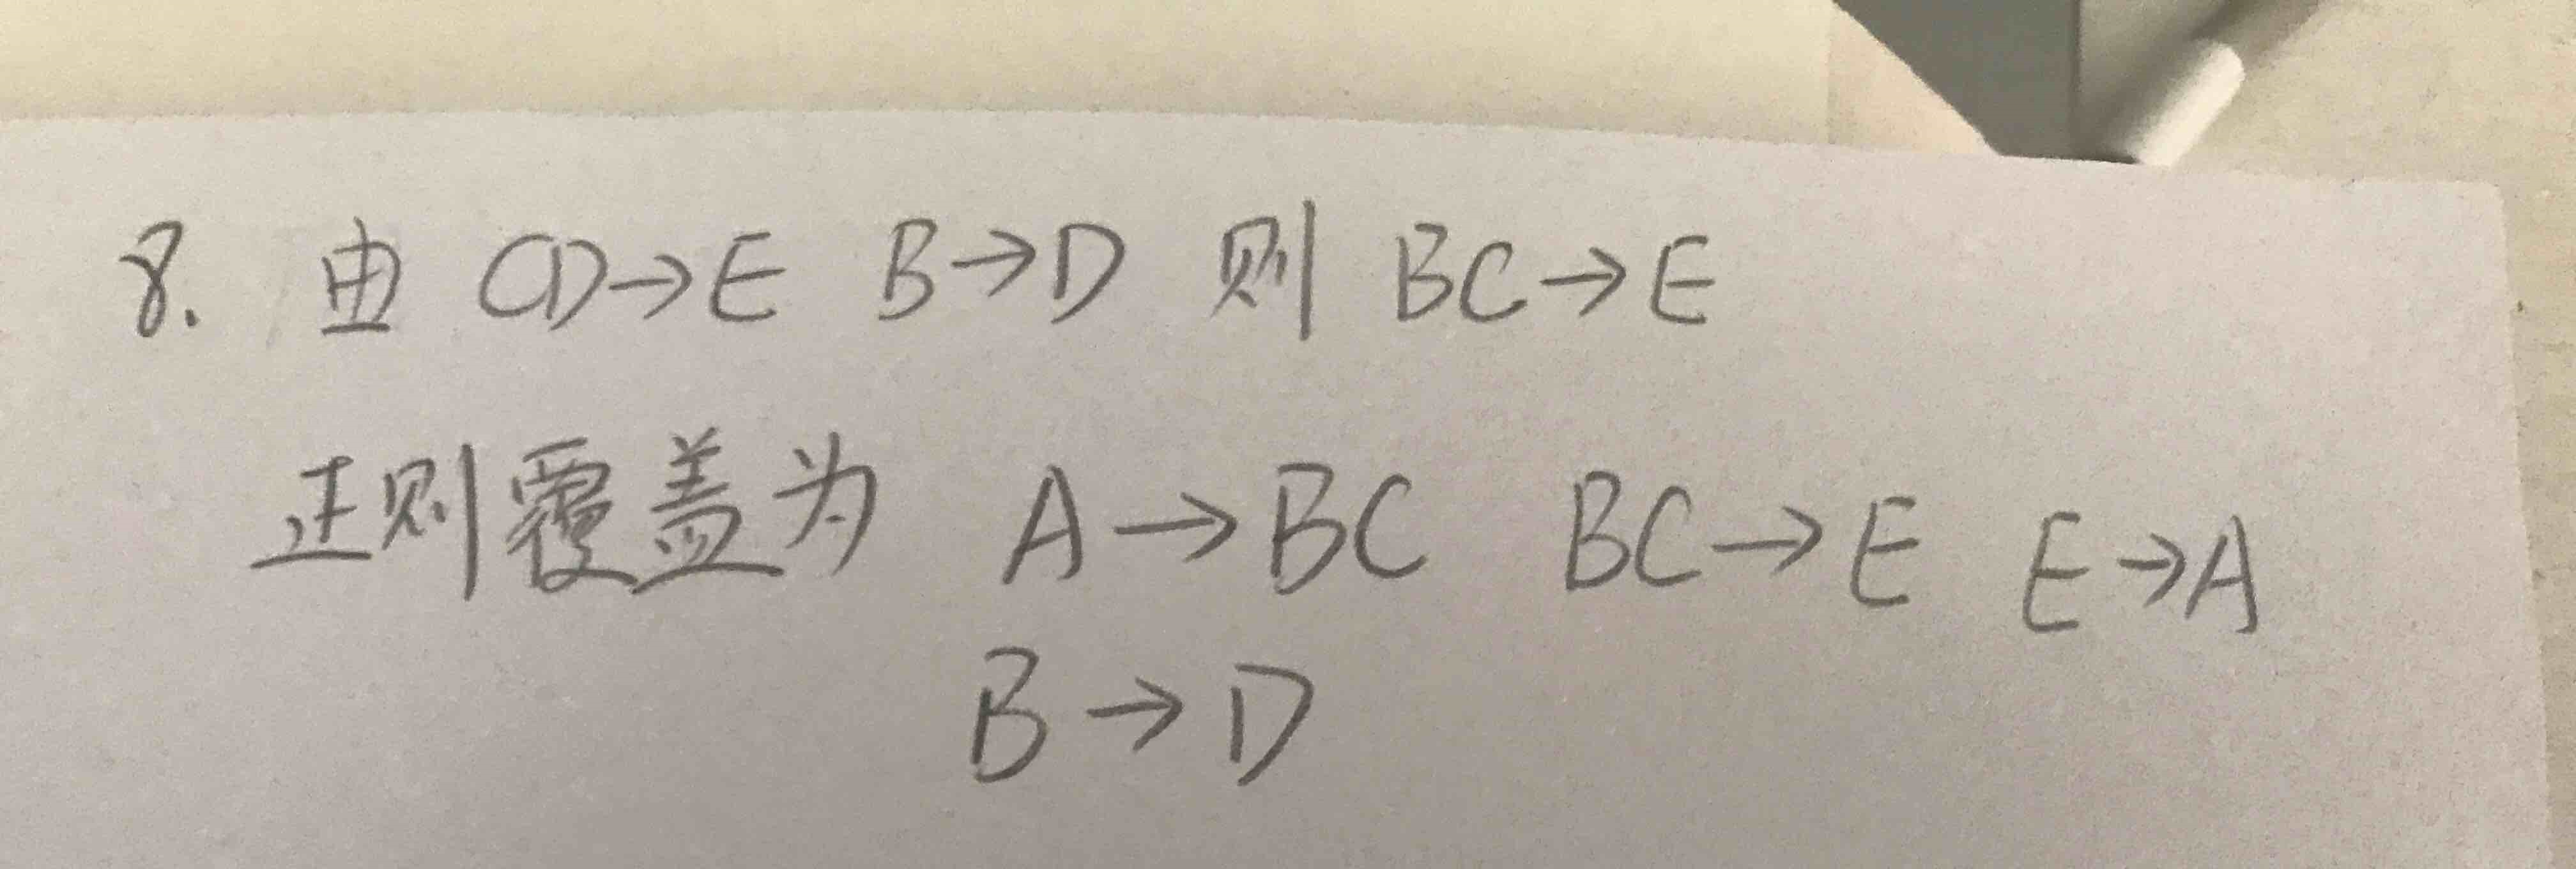 8. 由 CD→E B→D 则 BC→E
正则覆盖为 A→BC BC→E E→A
B→D